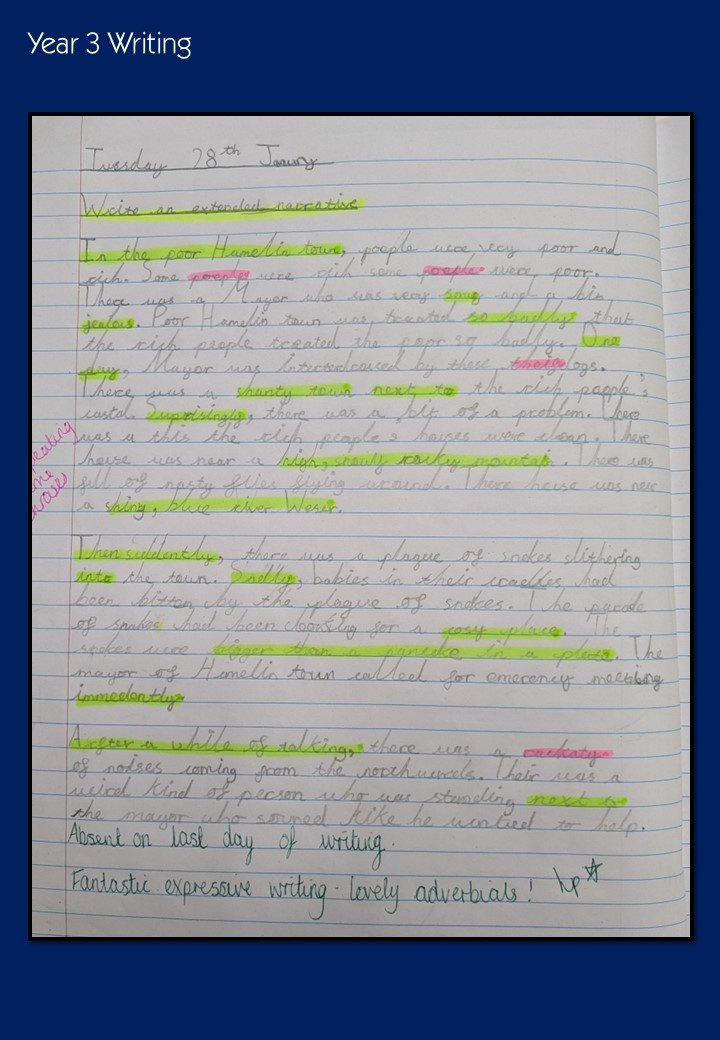 Year 3 Writing
Tuesday 28th January
Write an extended narrative
In the poor Hamelin town, poeple were very poor and
rich. Some poeple were rich some poeple were poor.
There was a Mayor who was very smug and a bin
jealas. Poor Hamelin town was treated so badly that
the rich people treated the poor so badly. One
day, Mayor was by these dogs.
There was a shanty town next to the rich people's
castal. Suprisingly, there was a bit of a problem. There
was a this the rich people's houses were clean. There
house was near a high, snowy rockey mountain. There was
full of nasty flies flying around. There house was near
a shiny, blue river Weser.
repeating
some
phrases
Then suddently, there was a plague of snakes slithering
into the town. Sadly, babies in their cradles had
been bitten by the plague of snakes. The parade
of snakes had been looking for a cosy place. The
snakes were bigger than a pancake in a plate. The
mayor of Hamelin town called for emerency meeting
immedently
After a while of talking, there was a
of noises coming from the northwerds. Their was a
weird kind of person who was standing next to
the mayor who somed like he wanted to help.
Absent on last day of writing.
Fantastic expressive writing - lovely adverbials!